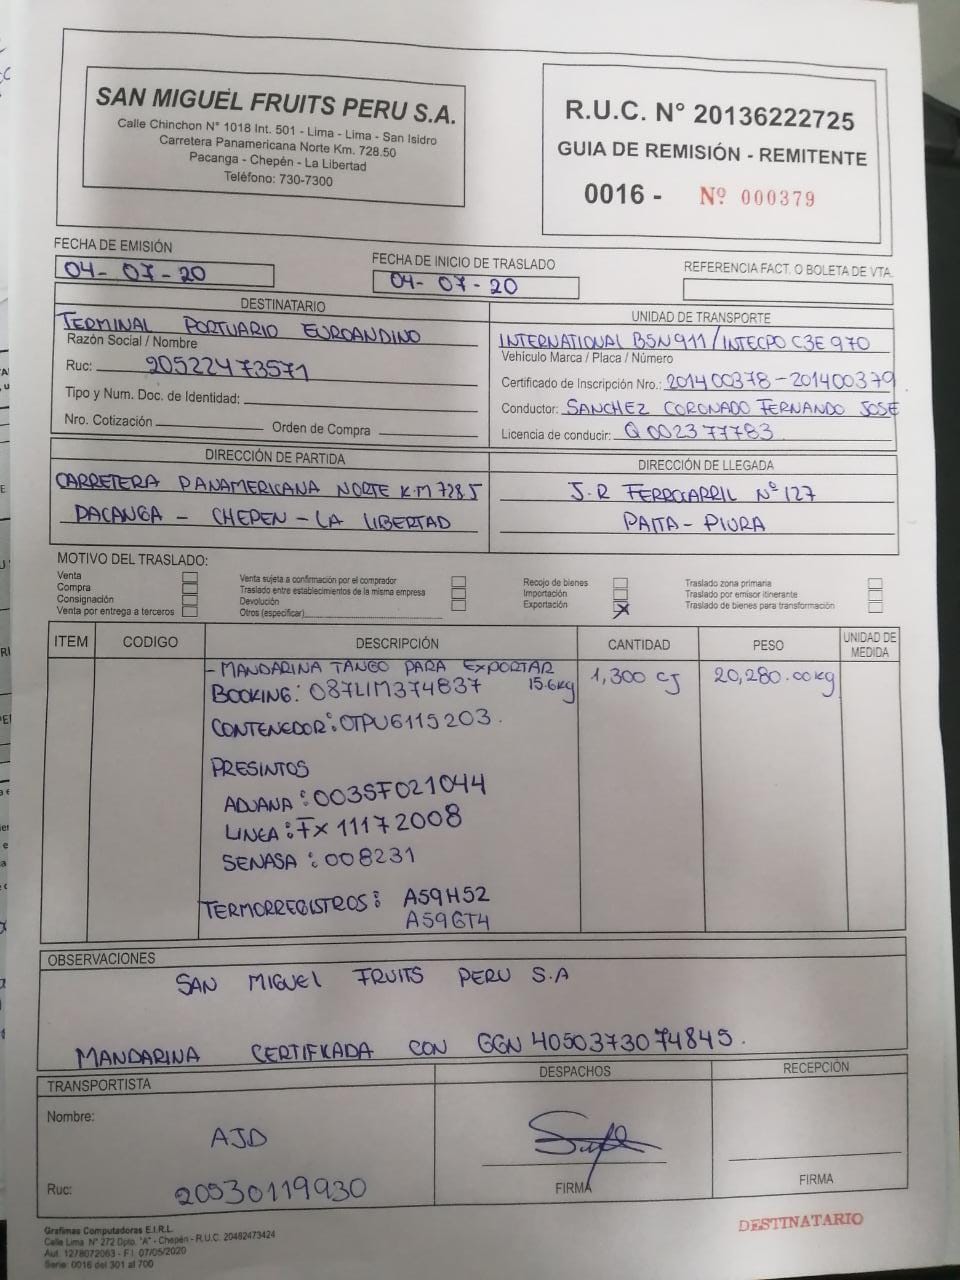 SAN MIGUEL FRUITS PERU S.A.
Calle Chinchon N° 1018 Int. 501 - Lima - Lima - San Isidro
Carretera Panamericana Norte Km. 728.50
Pacanga - Chepén - La Libertad
Teléfono: 730-7300
R.U.C. N° 20136222725
GUIA DE REMISIÓN - REMITENTE
0016 - Nº 000379
FECHA DE EMISIÓN
04-07-20
FECHA DE INICIO DE TRASLADO
04-07-20
REFERENCIA FACT. O BOLETA DE VTA.
DESTINATARIO
TERMINAL PORTUARIO EUROANDINO
Razón Social / Nombre
Ruc: 20522473571
Tipo y Num. Doc. de Identidad:
Nro. Cotización Orden de Compra
UNIDAD DE TRANSPORTE
INTERNATIONAL BSN911/INTECPO C3E970
Vehículo Marca / Placa / Número
Certificado de Inscripción Nro.: 201400378-201400379
Conductor: SANCHEZ CORONADO FERNANDO JOSE
Licencia de conducir: Q002377783
DIRECCIÓN DE PARTIDA
CARRETERA PANAMERICANA NORTE K.M 728.5
PACANGA - CHEPEN - LA LIBERTAD
DIRECCIÓN DE LLEGADA
J.R FERROCARRIL Nº 127
PAITA - PIURA
MOTIVO DEL TRASLADO:
Venta
Compra
Consignación
Venta por entrega a terceros
Venta sujeta a confirmación por el comprador
Traslado entre establecimientos de la misma empresa
Devolución
Otros (especificar)
Recojo de bienes
Importación
Exportación X
Traslado zona primaria
Traslado por emisor itinerante
Traslado de bienes para transformación
ITEM CODIGO DESCRIPCIÓN CANTIDAD PESO UNIDAD DE MEDIDA
- MANDARINA TANGO PARA EXPORTAR 1,300 CJ 20,280.00kg
BOOKING: 087LIM374837 15.6kg
CONTENEDOR: OTPU6115203.
PRESINTOS
ADUANA: 003SF021044
LINEA: FX11172008
SENASA: 008231
TERMORREGISTROS: A59H52
A59GT4
OBSERVACIONES
SAN MIGUEL FRUITS PERU S.A
MANDARINA CERTIFICADA CON GGN 4050373074845.
TRANSPORTISTA
Nombre:
AJD
Ruc: 20530119930
DESPACHOS
FIRMA
RECEPCIÓN
FIRMA
Grafimas Computadoras E.I.R.L.
Calle Lima N° 272 Dpto. "A" - Chepén - R.U.C. 20482473424
Aut. 1278072063 - F.I. 07/05/2020
Serie: 0016 del 301 al 700
DESTINATARIO